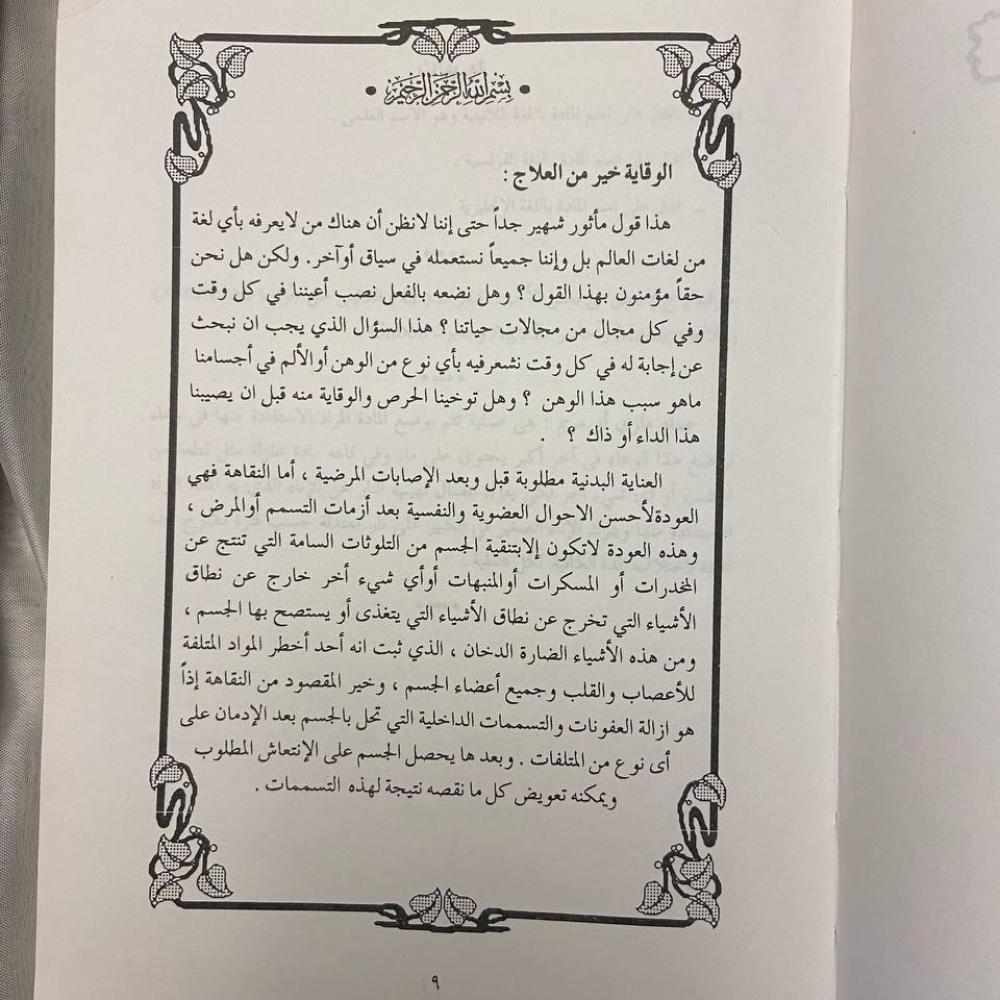 بسم الله الرحمن الرحيم
الوقاية خير من العلاج :
هذا قول مأثور شهير جداً حتى إننا لانظن أن هناك من لايعرفه بأي لغة
من لغات العالم بل وإننا جميعاً نستعمله في سياق أوآخر. ولكن هل نحن
حقاً مؤمنون بهذا القول ؟ وهل نضعه بالفعل نصب أعيننا في كل وقت
وفي كل مجال من مجالات حياتنا ؟ هذا السؤال الذي يجب ان نبحث
عن إجابة له في كل وقت نشعرفيه بأي نوع من الوهن أوالألم في أجسامنا
ماهو سبب هذا الوهن ؟ وهل توخينا الحرص والوقاية منه قبل ان يصيبنا
هذا الداء أو ذاك ؟ .
العناية البدنية مطلوبة قبل وبعد الإصابات المرضية ، أما النقاهة فهي
العودةلأحسن الاحوال العضوية والنفسية بعد أزمات التسمم أوالمرض ،
وهذه العودة لاتكون إلابتنقية الجسم من التلوثات السامة التي تنتج عن
المخدرات أو المسكرات أوالمنبهات أوأي شيء أخر خارج عن نطاق
الأشياء التي تخرج عن نطاق الأشياء التي يتغذى أو يستصح بها الجسم ،
ومن هذه الأشياء الضارة الدخان ، الذي ثبت انه أحد أخطر المواد المتلفة
للأعصاب والقلب وجميع أعضاء الجسم ، وخير المقصود من النقاهة إذاً
هو ازالة العفونات والتسممات الداخلية التي تحل بالجسم بعد الإدمان على
أى نوع من المتلفات . وبعد ها يحصل الجسم على الإنتعاش المطلوب
ويمكنه تعويض كل ما نقصه نتيجة لهذه التسممات .
٩